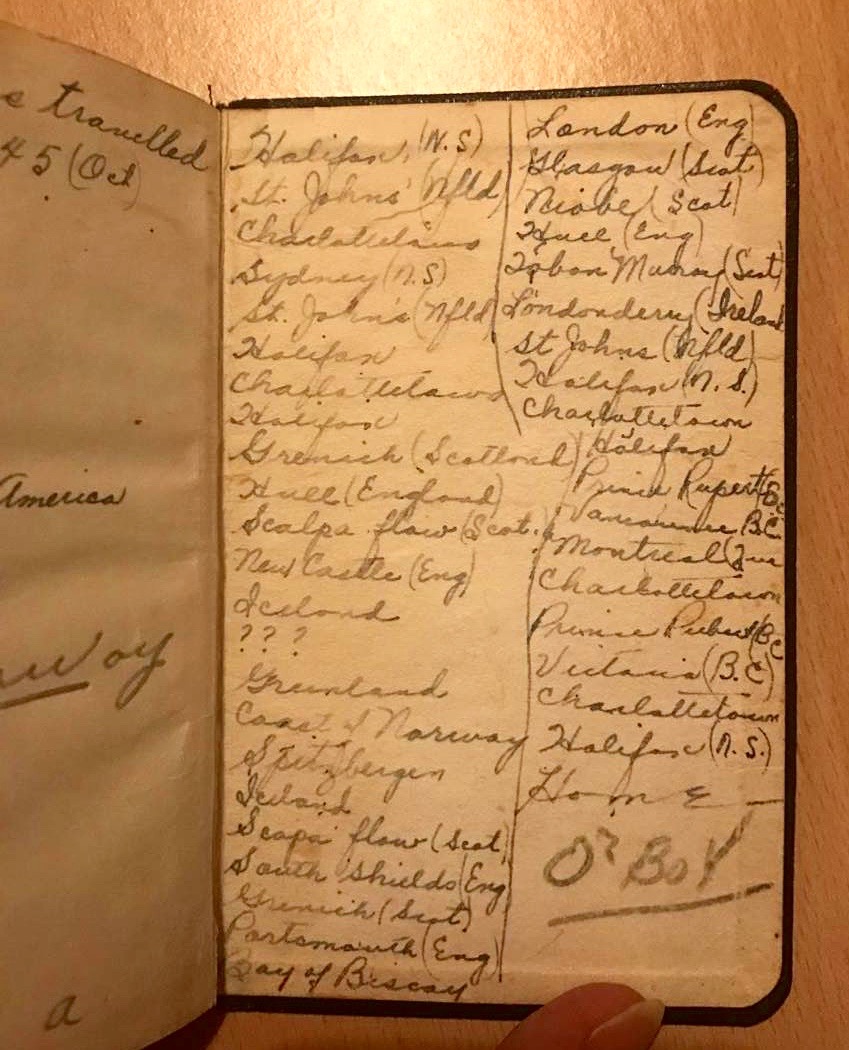 s travelled
45 (Oct)
America
way
a
Halifax, (N.S)
St. Johns' (Nfld)
Charlottetown
Sydney (N.S)
St. John's (Nfld)
Halifax
Charlottetown
Halifax
Grenich (Scotland)
Hull (England)
Scalpa flow (Scot.
New Castle (Eng)
Iceland
? ? ?
Greenland
Coast of Norway
Spitzbergen
Iceland
Scapa flow (Scot)
South Shields (Eng
Grenich (Scot)
Portsmouth (Eng)
Bay of Biscay
London (Eng
Glasgow (Scot)
Niobe (Scot)
Hull (Eng)
(Scot)
Londonderry (Ireland
St Johns (Nfld)
Halifax (N.S.)
Charlottetown
Halifax
Prince Rupert (B.C
Vancouver B.C.
Montreal (Que
Charlottetown
Prince Rubert (B.C
Victoria (B.C)
Charlottetown
Halifax (N.S.)
Home —
O' BOY